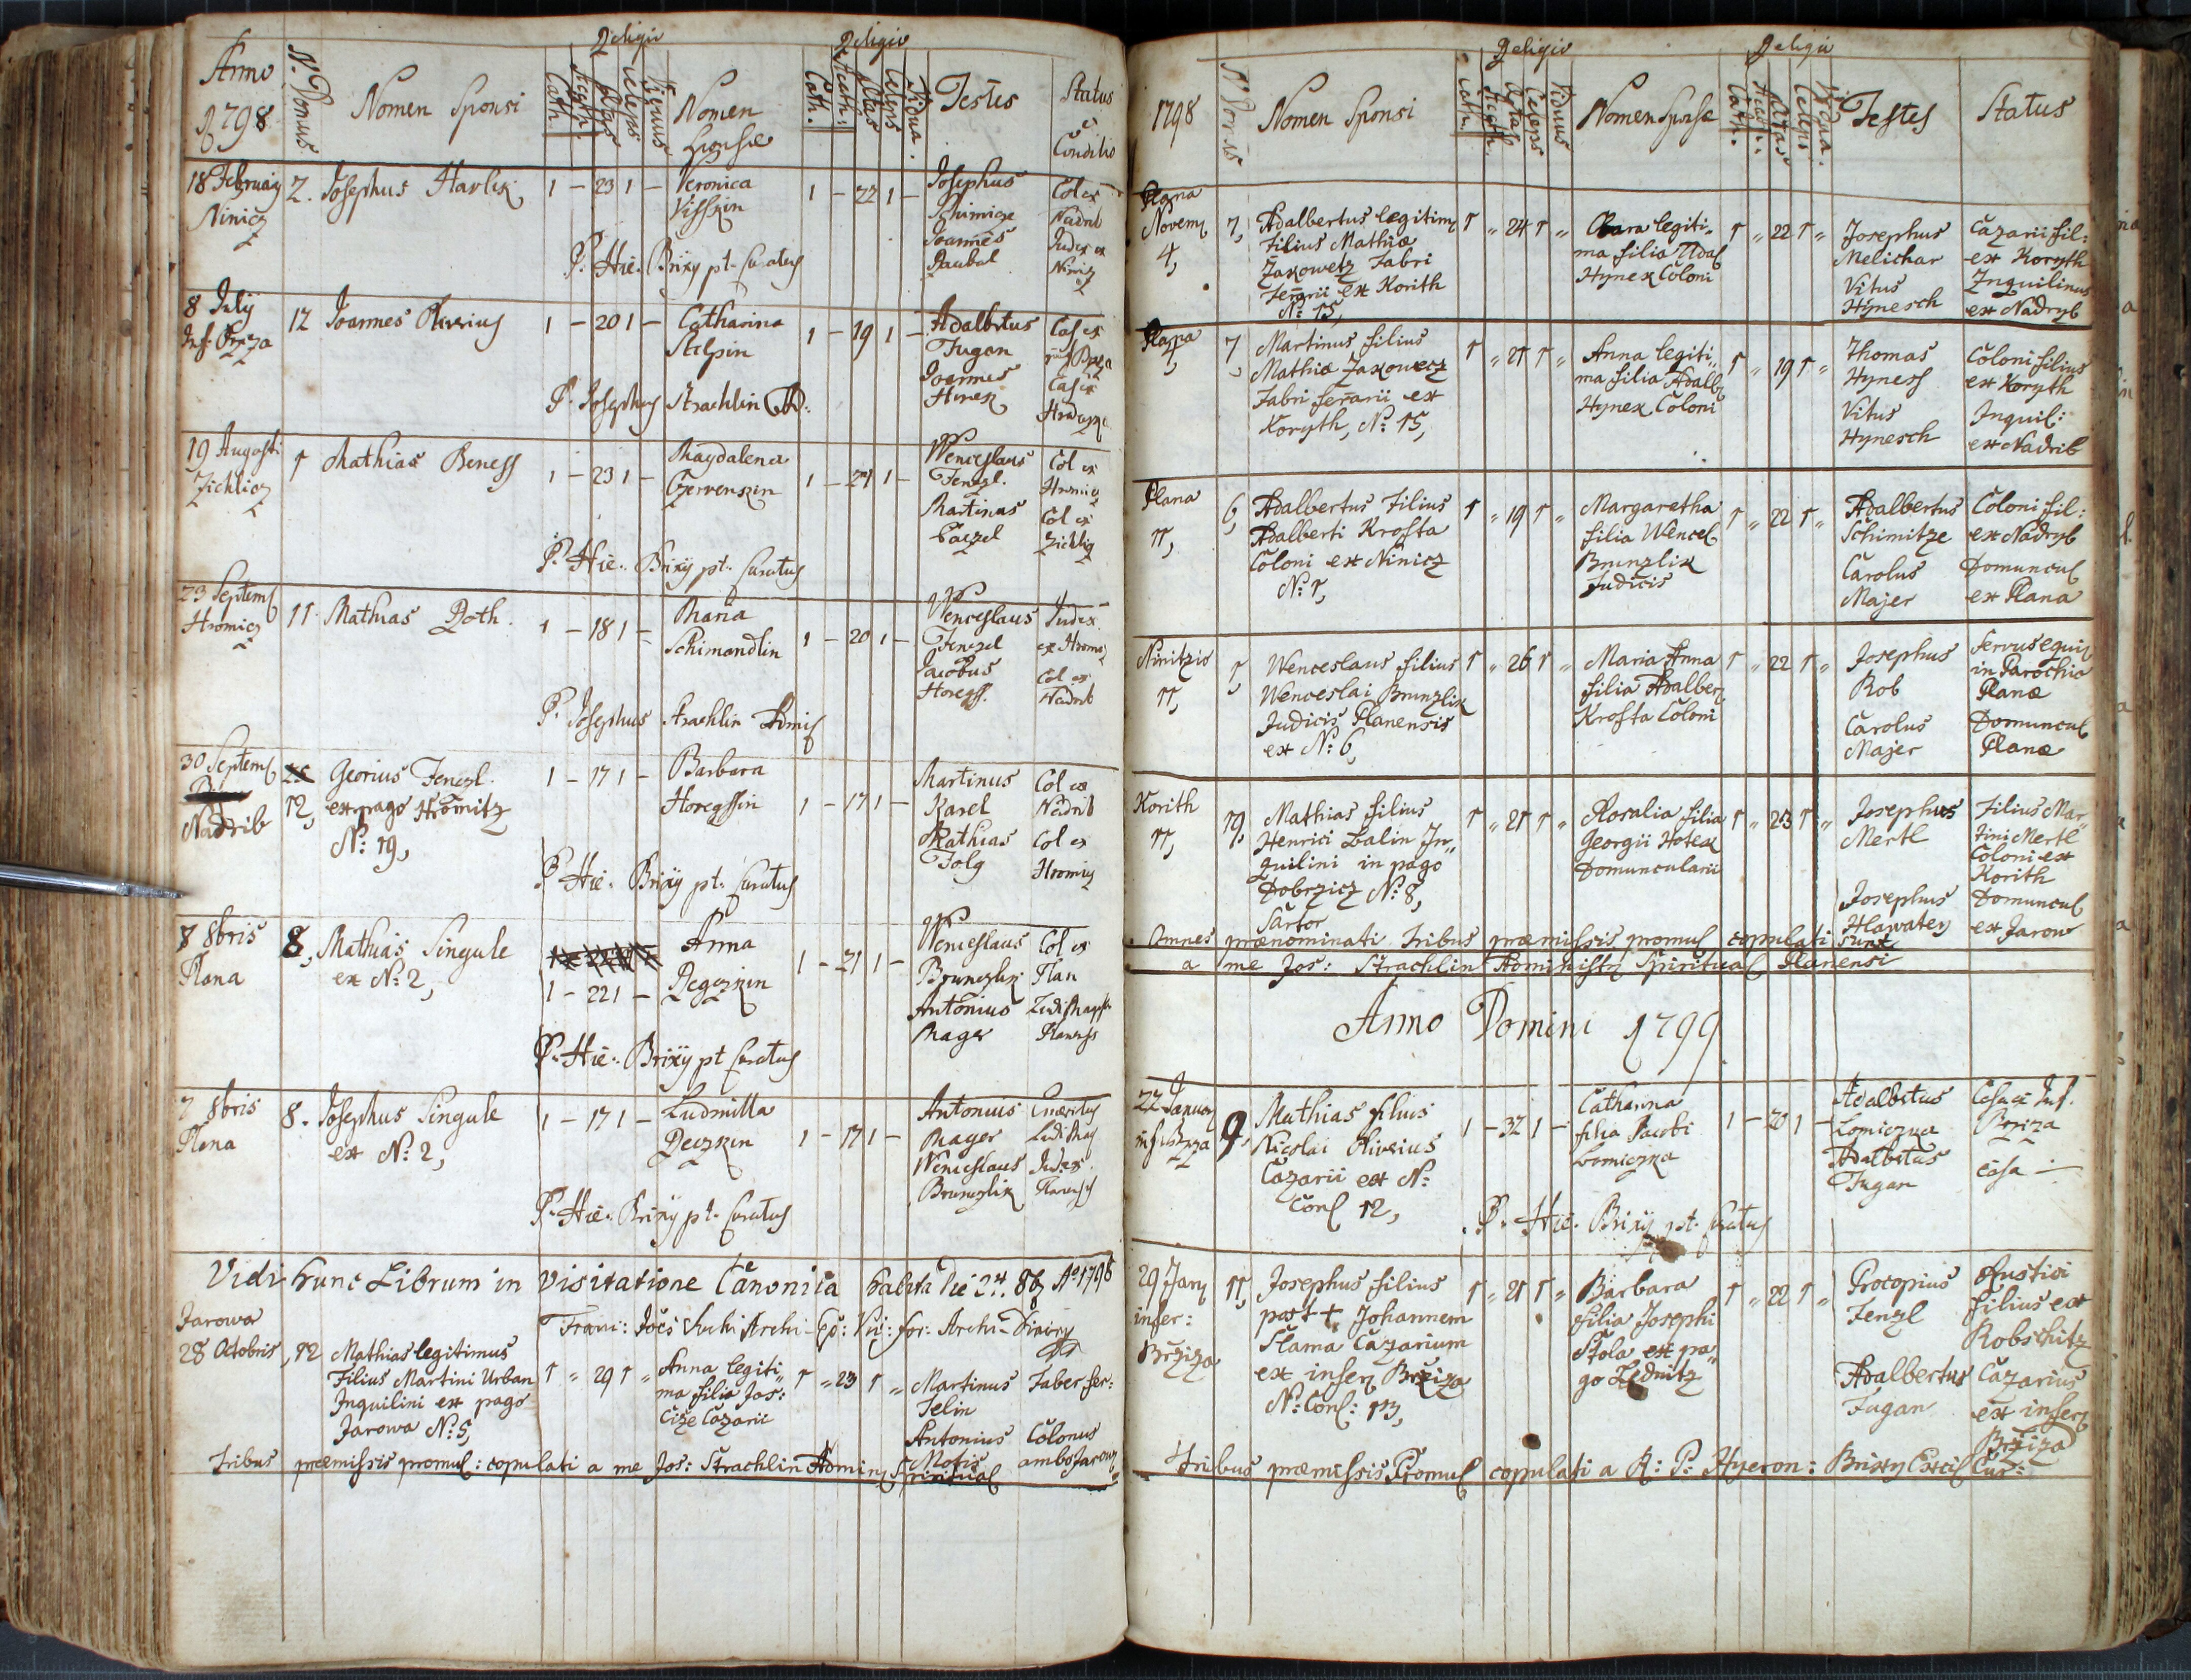 Religio Religio
Anno 1798 N. Domus Nomen Sponsi Cath. Acath. Aetas Celeps Viduus Nomen Sponsæ Cath. Acath. Aetas Celeps Vidua. Testes Status et Conditio
18 February 2. Josephus Havlik 1 – 23 1 – Veronica 1 – 22 1 – Josephus Col ex
Ninicz Schimize Nadrib
Joannes Judex ex
Daubal Ninicz
P. Hie. Brixy pt. Curatus
8 July 12 Joannes Oliverius 1 – 20 1 – Catharina 1 – 19 1 – Adalbetus Cas ex
Inf. Brzeza Fugan
Joannes Cas ex
Hinek
P. Josephus Strachlin
19 Augusti 1 Mathias Beness 1 – 23 1 – Magdalena 1 – 24 1 – Wenceslaus Col ex
Zichlicz Czervenkin Fenzl. Hromicz
Martinus Col ex
Zichlicz
P. Hie. Brixy pt. Curatus
23 Septemb 11. Mathias Roth. 1 – 18 1 – Maria 1 – 20 1 – Wenceslaus Judex
Hromicz Schimandlin Fenzel ex Hromicz
Jacobus Col ex
Horegss. Nadrib
P. Josephus Strachlin Admis
30 Septemb Georius Fenzl. 1 – 17 1 – Barbara 1 – 17 1 – Martinus Col ex
Nadrib 12, ex pago Hromitz Horegssin Karel Nadrib
No: 19, Mathias Col ex
Folg Hromicz
P. Hie. Brixy pt. Curatus
7 8bris 8, Mathias Singule Anna 1 – 21 1 – Wenceslaus Col ex
Plana ex No: 2, 1 – 22 1 – Brunczlik Plan
Antonius
Mager Planensis
P. Hie. Brixy pt Curatus
7 8bris 8. Josephus Singule 1 – 17 1 – Ludmilla 1 – 17 1 – Antonius
Plana ex No: 2, Mager
Wenceslaus Judex
Brunczlik Planensis
P. Hie. Brixy pt. Curatus
Vidi hunc Librum in visitatione Canonica habita die 24. 8b Ao 1798
Jarowa
28 Octobris, 12 Mathias legitimus 1 „ 29 1 „ Anna legiti„ 1 „ 23 1 „ Martinus Faber fer:
Filius Martini Urban ma filia Jos: Jelin
Inquilini ex pago Cize Cazarii Antonius Colonus
Jarowa No: 5, Motis ambo Jarow
Tribus præmissis promul: copulati a me Jos: Strachlin Admins Spiritual
Religio Religio
1798 N. Domus Nomen Sponsi Cath. Acath. Aetas Celeps Viduus Nomen Sponsæ Cath. Acath. Aetas Celeps Vidua. Testes Status
Plana
Novem 7, Adalbertus legitim 1 „ 24 1 „ Clara legiti„ 1 „ 22 1 „ Josephus Cazarii fil:
4, Filius Mathiæ ma filia Adal Melichar ex Koryth
Zakowetz Fabri Hynek Coloni Vitus Inquilinus
Ferrarii ex Korith Hynesch ex Nadryb
No: 15,
Plana 7, Martinus filius 1 „ 21 1 „ Anna legiti„ 1 „ 19 1 „ Thomas Coloni filius
4, Mathiæ Zakowecz ma filia Adalb Hyness ex Koryth
Fabri ferrarii ex Hynek Coloni Vitus Inquil:
Koryth, No: 15, Hynesch ex Nadrib
Plana 6, Adalbertus Filius 1 „ 19 1 „ Margaretha 1 „ 22 1 „ Adalbertus Coloni fil:
11, Adalberti Krofta filia Wencel Schimitze ex Nadryb
Coloni ex Ninicz Brunzlik Carolus Domuncul
No: 1, Judicis Majer ex Plana
Ninitzio 1, Wenceslaus filius 1 „ 26 1 „ Maria Anna 1 „ 22 1 „ Josephus Servus equis
11, Wenceslai Brunzlik filia Adalber Rob in Parochia
Judicis Planensis Krofta Coloni Planæ
ex No: 6, Carolus Domuncul
Majer Planæ
Korith 19, Mathias filius 1 „ 21 1 „ Rosalia filia 1 „ 23 1 „ Josephus Filius Mar„
11, Henrici Balin In„ Georgii Hotek Mertl tini Mertl
quilini in pago Domuncularii Coloni ex
Dobrzicz No: 8, Korith
Sartor Josephus Domuncul
Hawatey ex Jarow
Omnes prænominati tribus præmissis promul copulati sunt
a me Jos: Strachlin Administr Spiritual Planensi
Anno Domini 1799
22 Januar 9, Mathias filius 1 – 32 1 – Catharina 1 – 20 1 – Adalbetus Casa ex Inf.
inf. Brzza Nicolai Oliverius filia Jacobi Lomiczka Brziza
Cazarii ex N: Lomiczka Adalbetus Casa –
Cons 12, Fugan
P. Hie. Brixy pt. Curatus
29 Janu 11, Josephus filius 1 „ 21 1 „ Barbara 1 „ 22 1 „ Procopius Rustici
infer: post † Johannem filia Josephi Fenzl filius ex
Brziza Slama Cazarium Stola ex pa„ Robschitz
ex infer Brziza go Lednitz Adalbertus Cazarius
N: Cons: 13, Fugan ex infer
Brziza
Tribus præmissis Promul copulati a R: P: Hyeron: Brixy Excis Cur: